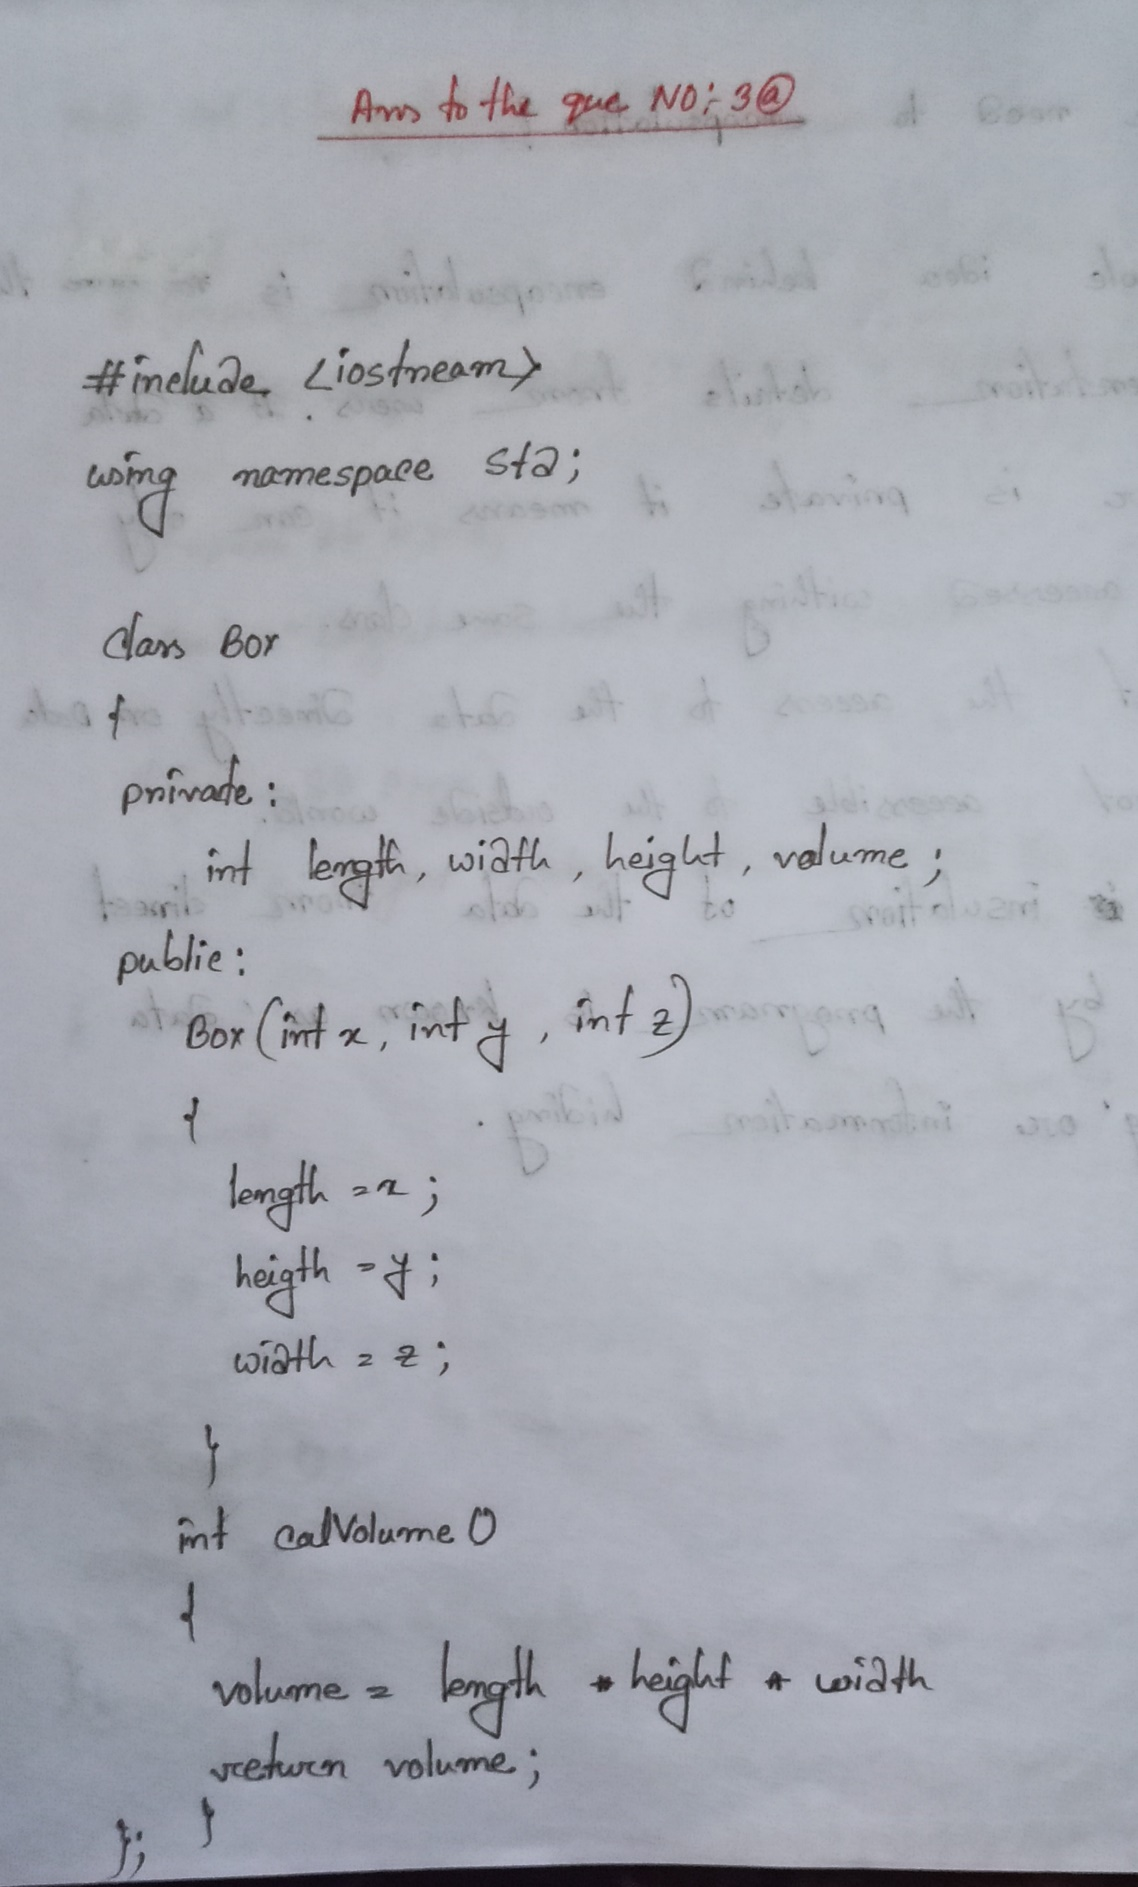 Ans to the que NO: 3(a)
#include <iostream>
using namespace std;
class Box
{
private:
int length, width, height, volume;
public:
Box (int x, int y, int z)
{
length = x;
heigth = y;
width = z;
}
int calVolume()
{
volume = length * height * width
return volume;
}
};